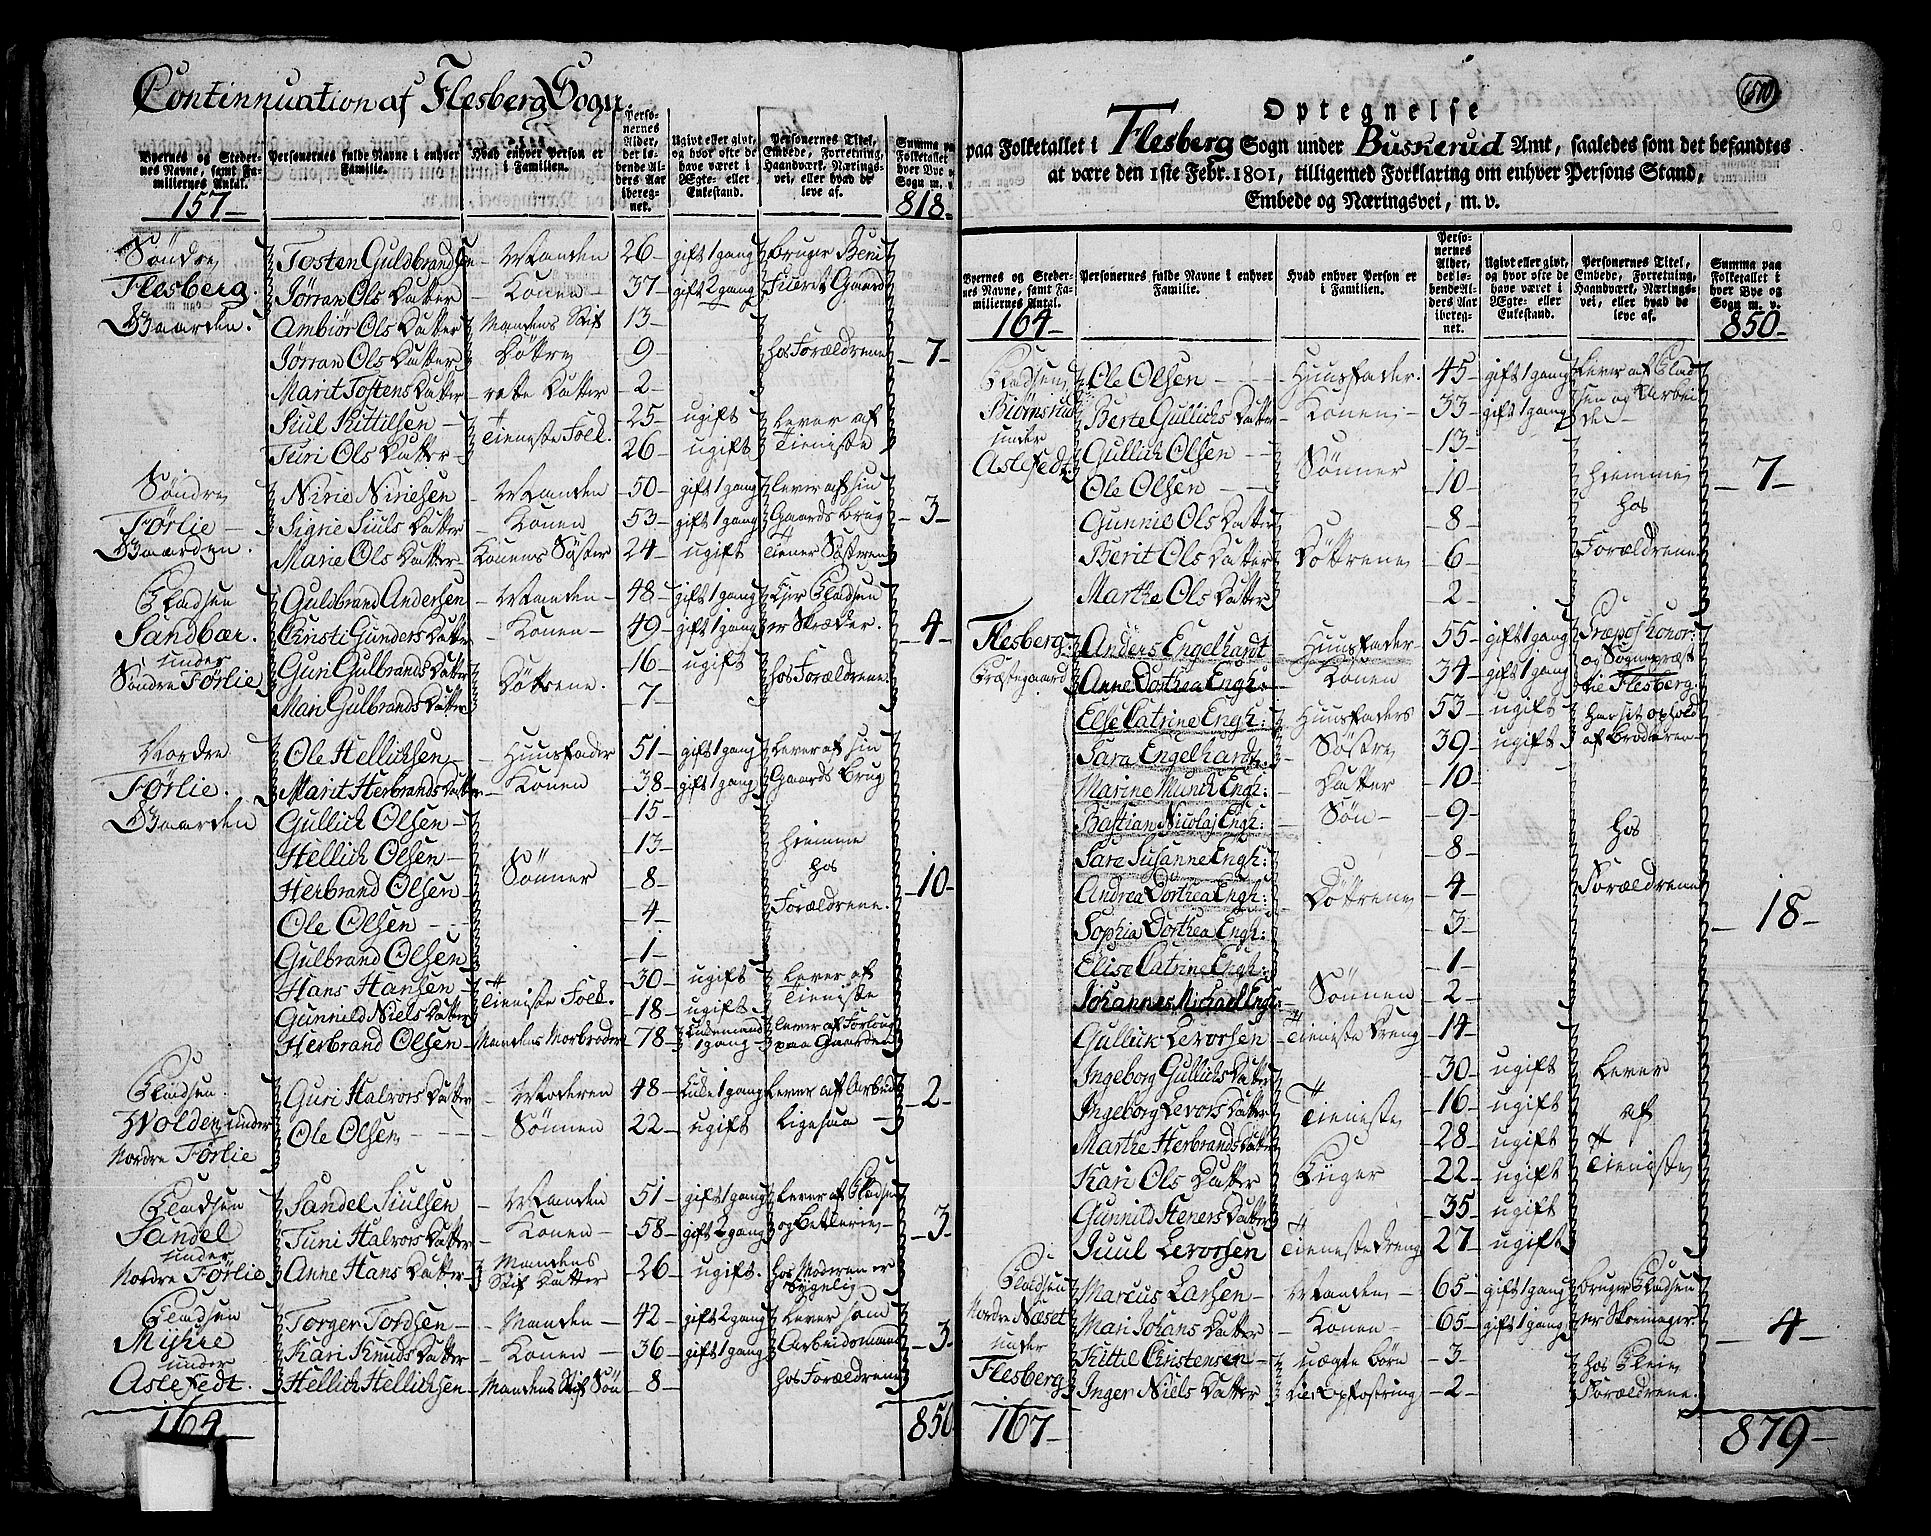 Continnuation af Flesberg Sogn.
Byernes og Stedernes Navne, samt Familiernes Antal.
Personernes fulde Navne i enhver Familie.
Hvad enhver Person er i Familien.
Personernes Alder, det løbende Alders Aar iberegnet.
Ugivt eller givt, og hvor ofte de have været i Ægte- eller Enkestand.
Personernes Titel, Embede, Forretning, Haandværk, Næringsvei, eller hvad de leve af.
Summa paa Folketallet i hver Bye og Sogn m. v.
157 818
Søndre Tosten Guldbrandsen Manden 26 gift 1 gang bruger Beni
Flesberg. Jørran Ols Datter Konen 37 gift 2 gang Gaard
Gaarden. Ambiör Ols Datter Mandens Stif 13
Jørran Ols Datter Døttre 9 hos Forældrene 7
Marit Tostens Datter rette Datter 2
Siul Kittilsen 25 ugift Lever af
Turi Ols Datter Tieniste Folk. 26 ugift Tieniste
Søndre Nirie Niriesen Manden 50 gift 1 gang lever af sin
Førlie Signe Siuls Datter Konen 53 gift 1 gang Gaards brug 3
Gaarden. Marie Ols Datter Konens Søster 24 ugift tiener Søsteren
Pladsen Guldbrand Andersen Manden 48 gift 1 gang Ejer Pladsen
Sandbær. Christi Gunders Datter Konen 49 gift 1 gang er Skræder. 4
under Guri Gulbrands Datter Døttrene. 16 ugift hos Forældrene
Søndre Førlie Mari Gulbrands Datter 7
Nordre Ole Hellichsen Huusfader 51 gift 1 gang Lever af sin
Førlie. Marit Herbrands Datter Konen 38 gift 1 gang Gaards brug
Gaarden Gullich Olsen 15
Hellich Olsen 13 hiemme
Herbrand Olsen Sønner 8 hos 10
Ole Olsen 4 Forældrene.
Gulbrand Olsen 1
Hans Hansen 30 ugift Lever af
Gunnild Niels Datter Tieniste Folk. 18 ugift Tieniste
Herbrand Olsen Mandens Morbroder 78 Enkemand 1 gang lever af Forloug paa Gaarden
Pladsen Guri Halvors Datter Moderen 48 Enke 1 gang Lever af Arbeid 2
Volden under Ole Olsen Sønnen 22 ugift Ligesaa
Nordre Førlie
Pladsen Sandel Siulsen Manden 51 gift 1 gang Lever af Pladsen
Sandel Turi Halvors Datter Konen 58 gift 2 gang og betlerie 3
under
Nordre Førlie Anne Hans Datter Mandens Stif Datter 26 ugift. hos Moderen er sygelig
Pladsen Torger Tordsen Manden 42 gift 2 gang Lever som
Myhre Kari Knuds Datter Konen 36 gift 1 gang Arbeidsmand 3
under
Aslefedt. Hellich Hellichsen Mandens Stif Søn 8 hos Forældrene
164 850
Optegnelse
paa Folketallet i Flesberg Sogn under Buskerud Amt, saaledes som det befandtes
at være den 1ste Febr. 1801, tilligemed Forklaring om enhver Persons Stand,
Embede og Næringsvei, m. v.
Byernes og Stedernes Navne, samt Familiernes Antal.
Personernes fulde Navne i enhver Familie.
Hvad enhver Person er i Familien.
Personernes Alder, det løbende Alders Aar iberegnet.
Ugivt eller givt, og hvor ofte de have været i Ægte- eller Enkestand.
Personernes Titel, Embede, Forretning, Haandværk, Næringsvei, eller hvad de leve af.
Summa paa Folketallet i hver Bye og Sogn m. v.
164 850
Pladsen Ole Olsen Huusfader. 45 gift 1 gang Lever af Plad
Biørnsrud Berte Gullichs Datter Konen 33 gift 1 gang sen og Arbei
under Gullich Olsen 13 de
Aslefedt Ole Olsen Sønner 10 hiemme 7
Gunnie Ols Datter 8 hos
Berit Ols Datter Døttrene 6 Forældrene
Marthe Ols Datter 2
Flesberg Anders Engelhardt Huusfader 55 gift 1 gang Præpos: honor: og Sognepræst
Præstegaard Anne Dorthea Engh: Konen 34 gift 1 gang til Flesberg.
Else Catrine Engh: Huusfaders 53 ugift har sit ophold
Sara Engelhardt Søstre 39 ugift af Broderen
Marine Munch Engh: Datter 10
Bastian Nicolaj Engh: Søn 9 hos
Sara Susanne Engh: 8
Andrea Dorthea Engh: Døttrene 4 Forældrene
Sophia Dorthea Engh: 3 18
Elise Catrine Engh: 1
Johannes Michael Engh: Sønnen 2
Gullich Levorsen Tieniste Dreng 14
Ingeborg Gullichs Datter 30 ugift Lever
Ingeborg Levors Datter Tieniste 16 ugift af
Marthe Herbrands Datter 28 ugift
Kari Ols Datter Piiger 22 ugift Tieniste
Gunnild Heners Datter 35 ugift
Juul Levorsen Tieniste Dreng 27 ugift
Pladsen Marcus Larsen Manden 65 gift 1 gang bruger Pladsen
Nordre Næset Mari Johans Datter Konen 65 gift 1 gang er Skomager 4
under Kittil Christensen uægte børn 3 hos Pleie
Flesberg Inger Niels Datter til Opfostring 2 Forældrene.
167 879